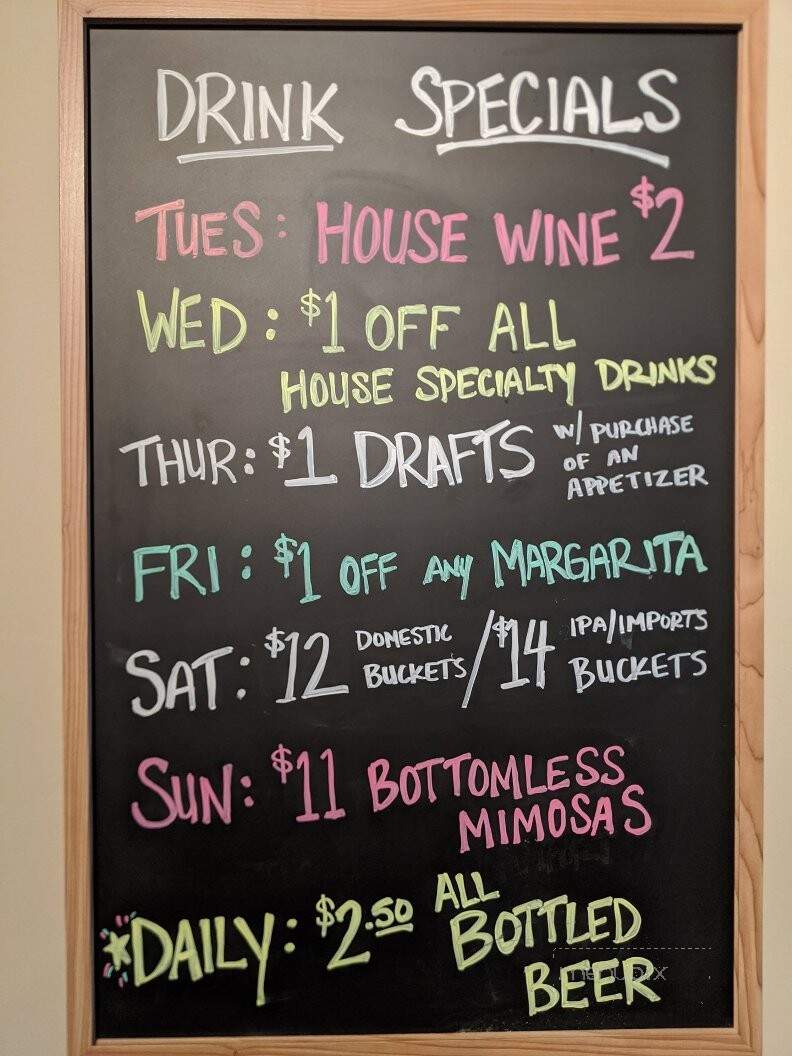 DRINK SPECIALS
TUES: HOUSE WINE $2
WED: $1 OFF ALL
HOUSE SPECIALTY DRINKS
THUR: $1 DRAFTS W/ PURCHASE
OF AN
APPETIZER
FRI: $1 OFF ANY MARGARITA
SAT: $12 DOMESTIC BUCKETS / $14 IPA/IMPORTS BUCKETS
SUN: $11 BOTTOMLESS
MIMOSAS
DAILY: $2.50 ALL
BOTTLED
BEER
menupix